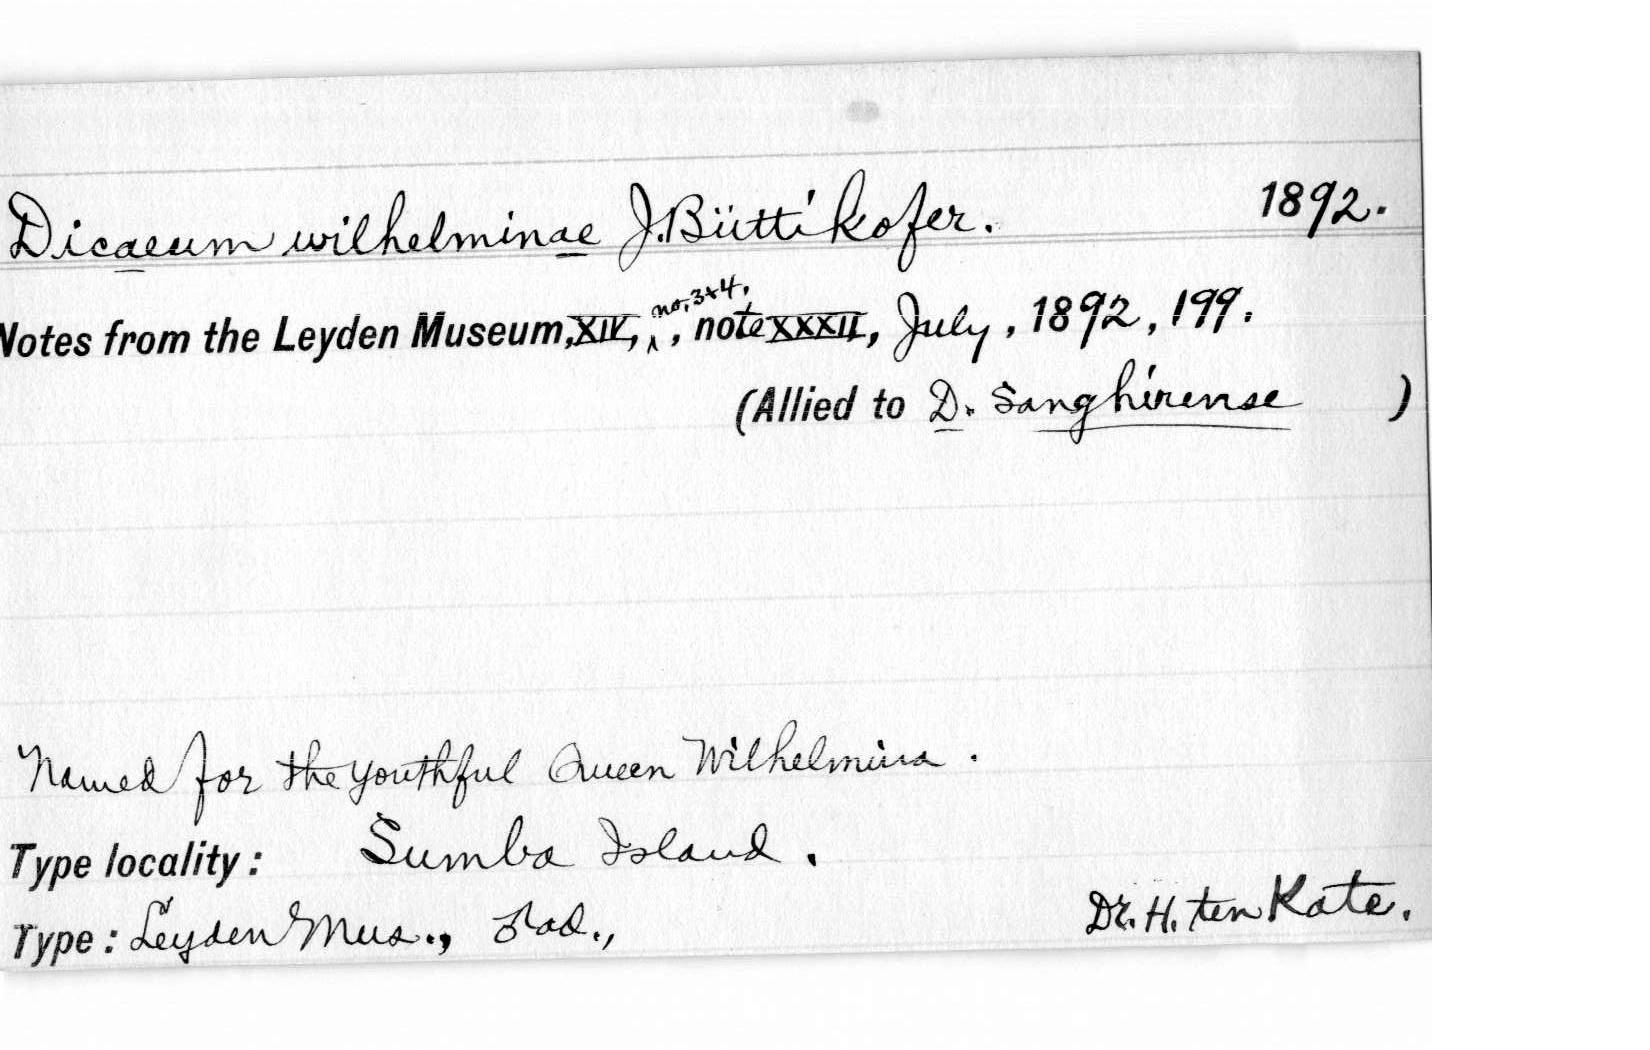 Dicaeum wilhelminae J. Büttikofer. 1892.
Notes from the Leyden Museum, XIV, no. 3+4, , note XXXII, July, 1892, 199.
(Allied to D. Sanghirense )
Named for the youthful Queen Wilhelmina.
Type locality: Sumba Island.
Type: Leyden Mus., ♂ad., Dr. H. ten Kate.